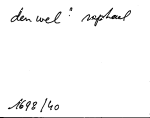 den wel " raphael
1698/40